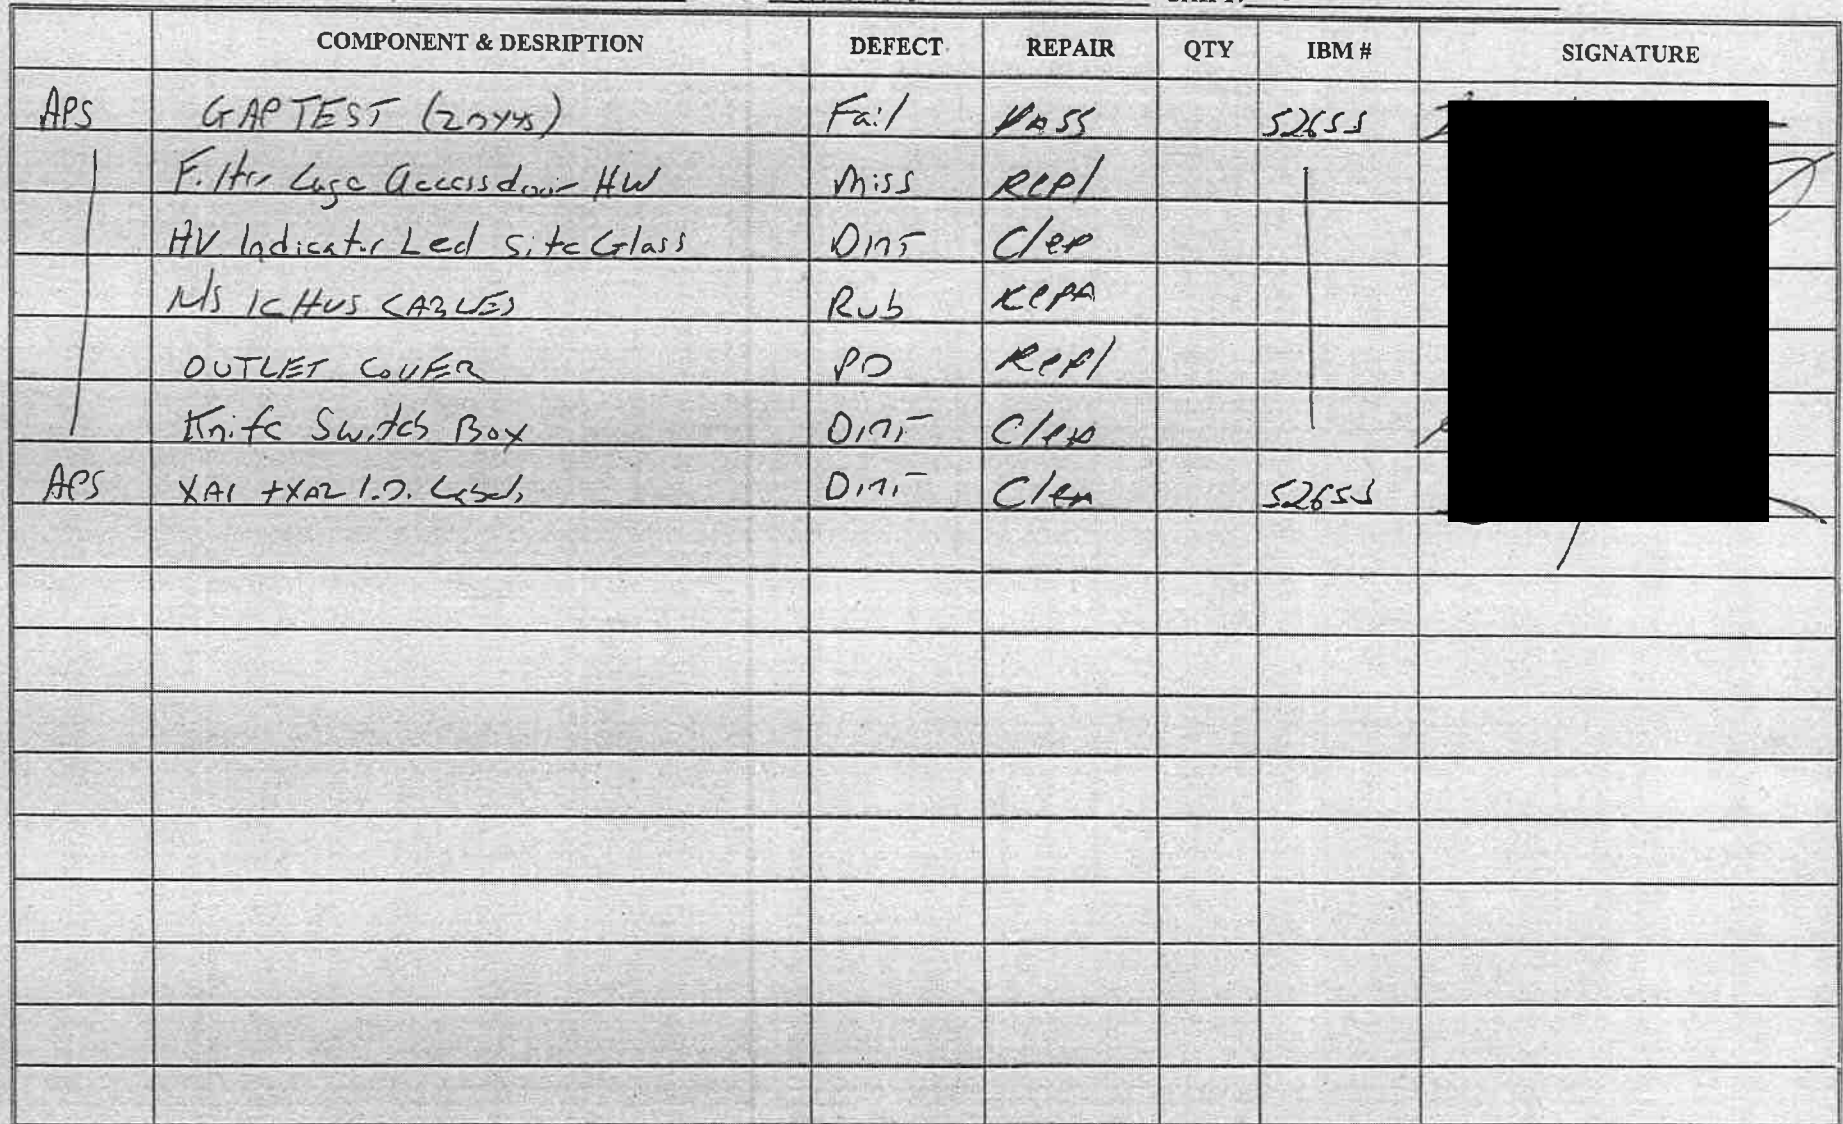 COMPONENT & DESRIPTION DEFECT REPAIR QTY IBM # SIGNATURE
APS GAP TEST Fail PASS
Access door HW Miss Repl
HV Indicator Led Site Glass Dirt Clea
CABLES Rub Repa
OUTLET COVER PD Repl
Knife Switch Box Dirt Clea
APS XA1 + XA2 I.D. Labels Dirt Clea